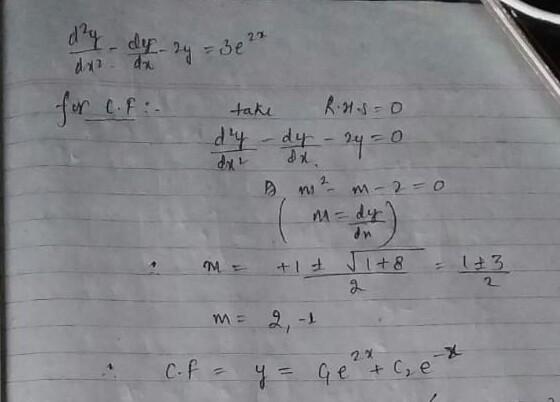 d²y/dx² - dy/dx - 2y = 3e^{2x}
for C.F :- take R.H.S = 0
d²y/dx² - dy/dx - 2y = 0
m² - m - 2 = 0
(m = dy/dx)
∴ m = +1 ± √(1+8) / 2 = 1±3 / 2
m = 2, -1
∴ C.F = y = C₁e^{2x} + C₂e^{-x}